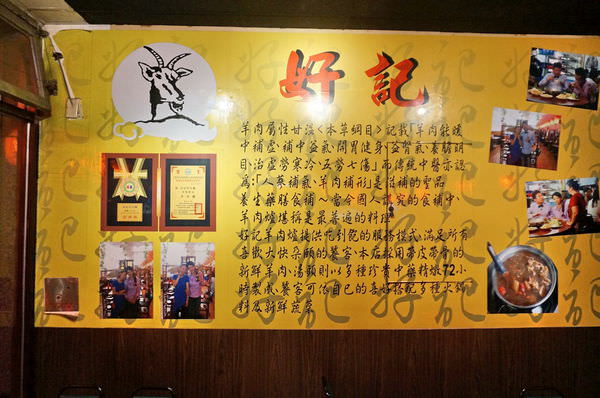 好記
羊肉屬性甘溫<本草綱目>記載「羊肉能暖
中補虛,補中益氣,開胃健身,益腎氣,養膽明
目,治虛勞寒冷,五勞七傷」而傳統中醫亦認
為:「人蔘補氣,羊肉補形」是滋補的聖品
養生藥膳食補~當令國人講究的食補中,
羊肉爐堪稱是最普遍的料理
好記羊肉爐提供吃到飽的服務模式,滿足所有
喜歡大快朵頤的饕客,本店採用帶皮帶骨的
新鮮羊肉,湯頭則以多種珍貴中藥精燉72小
時製成,饕客可依自己的喜好搭配多種火鍋
料及新鮮蔬菜